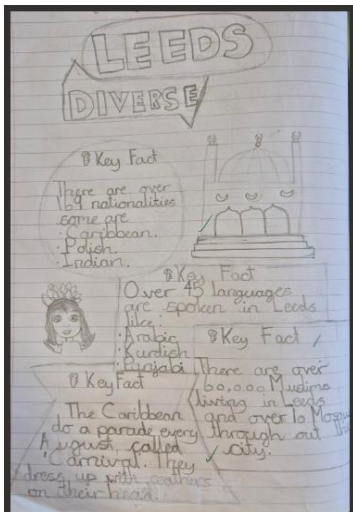 LEEDS
DIVERSE
Key Fact
There are over
169 nationalities
some are
·Caribbean.
·Polish.
·Indian.
Key Fact
Over 45 languages
are spoken in Leeds
like:
·Arabic
·Kurdish
·Punjabi
Key Fact
There are over
60,000 Muslims
living in Leeds
and over 10 Mosques
through out the
city.
Key Fact
The Caribbean
do a parade every
August called
'Carnival. They
dress up with feathers
on their head.